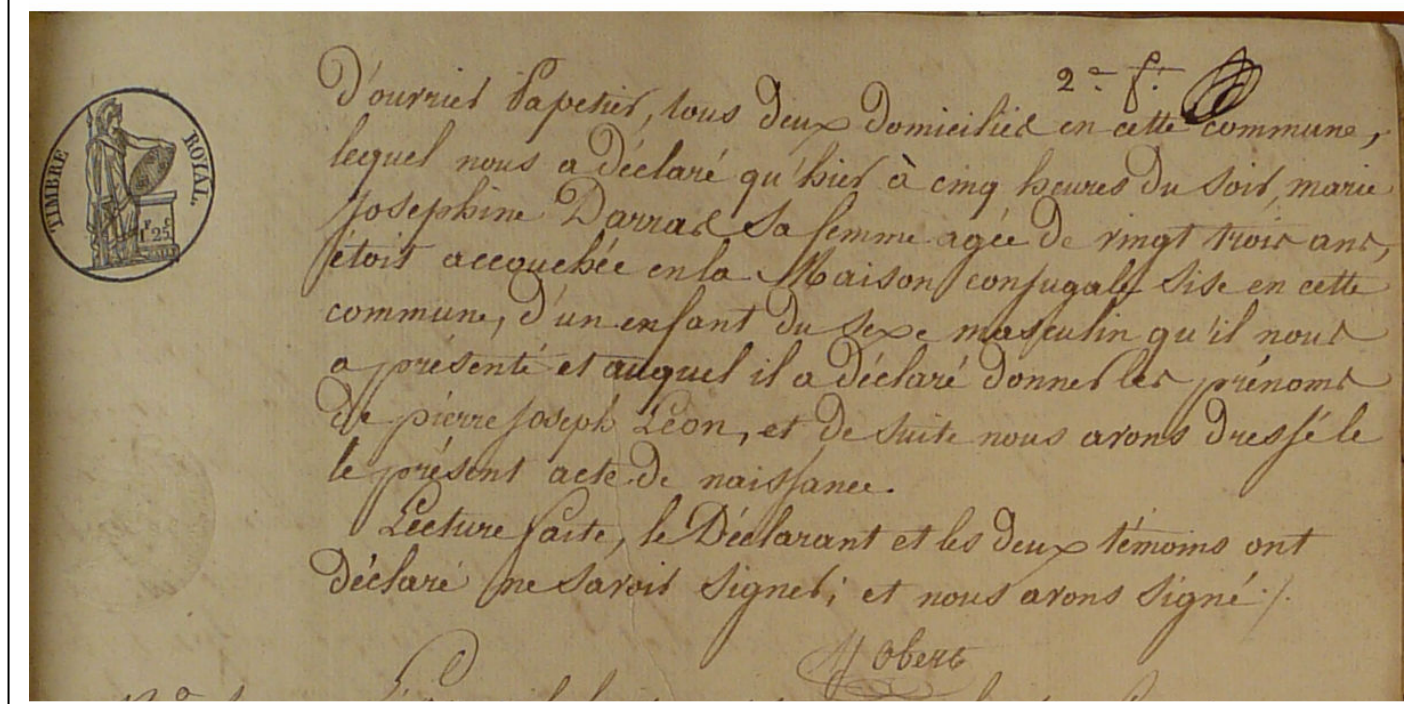 2e f.
TIMBRE ROYAL.
F C
1 25
D'ouvrier Papetier, tous Deux Domiciliés en cette commune,
lequel nous a Déclaré qu'hier à cinq heures Du Soir, marie
Josephine Darras Sa femme agée De vingt trois ans,
étoit accouchée en la Maison conjugale Sise en cette
commune, D'un enfant Du Sexe masculin qu'il nous
a présenté et auquel il a Déclaré Donner les prénoms
De pierre joseph Léon, et De Suite nous avons Dressé le
le présent acte De naissance.
Lecture faite, le Déclarant et les Deux témoins ont
Déclaré ne Savoir Signer; et nous avons Signé ./.